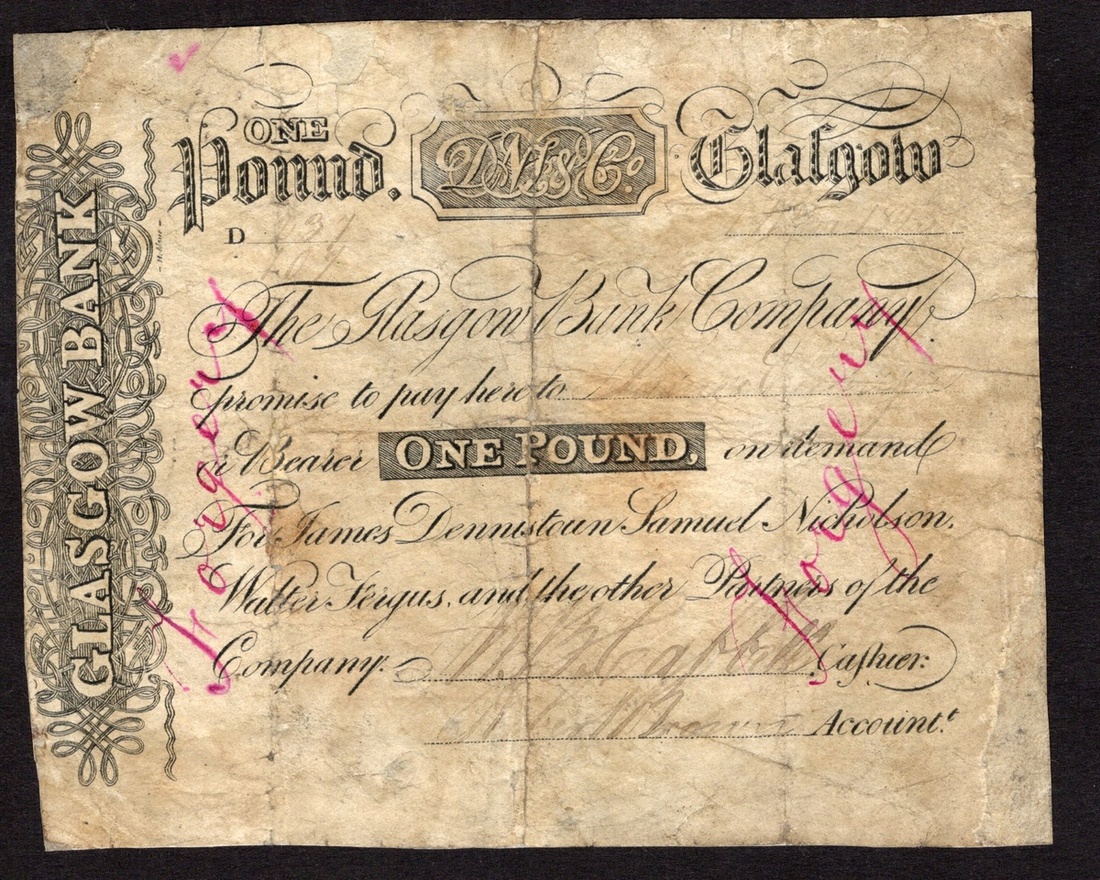 GLASGOW BANK
ONE
Pound. D.N.&Co. Glasgow
D
The Glasgow Bank Company.
promise to pay here to
or Bearer ONE POUND, on demand
For James Dennistoun Samuel Nicholson,
Walter Fergus, and the other Partners of the
Company. Cashier.
Account.t
Forgery
Forgery